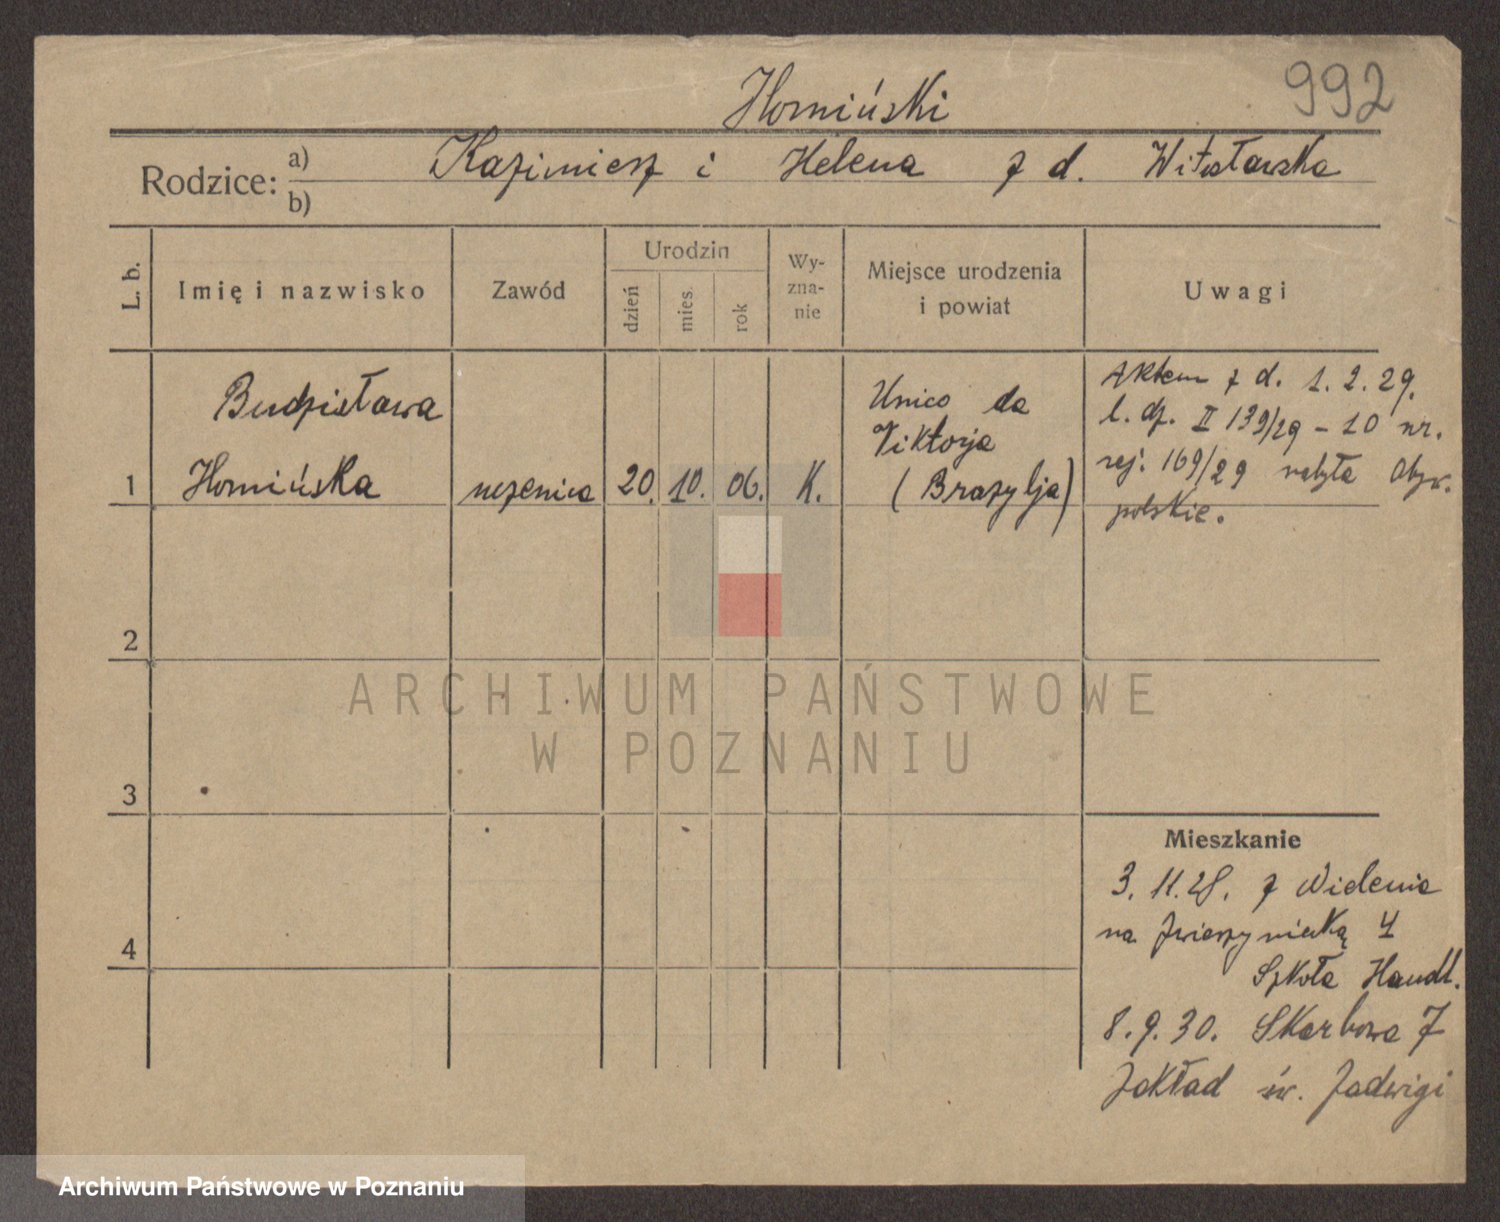 992
Homiński
Rodzice: a) Kazimierz i Helena z d. Witosławska
b)
L. b.
Imię i nazwisko
Zawód
Urodzin
dzień
mies.
rok
Wy-
zna-
nie
Miejsce urodzenia
i powiat
Uwagi
Budzisława
1 Homińska
uczenica
20. 10. 06.
K.
Unico da
Viktorja
(Brazylja)
Aktem z d. 1.2.29.
l. dz. II 139/29 - 10 nr.
rej. 169/29 nabyła obyw.
polskie.
2
3
4
Mieszkanie
3.11.28. z Wielenia
na Zwierzyniecką 4
Szkoła Handl.
8.9.30. Skarbowa 7
Zakład św. Jadwigi
ARCHIWUM PAŃSTWOWE
W POZNANIU
Archiwum Państwowe w Poznaniu